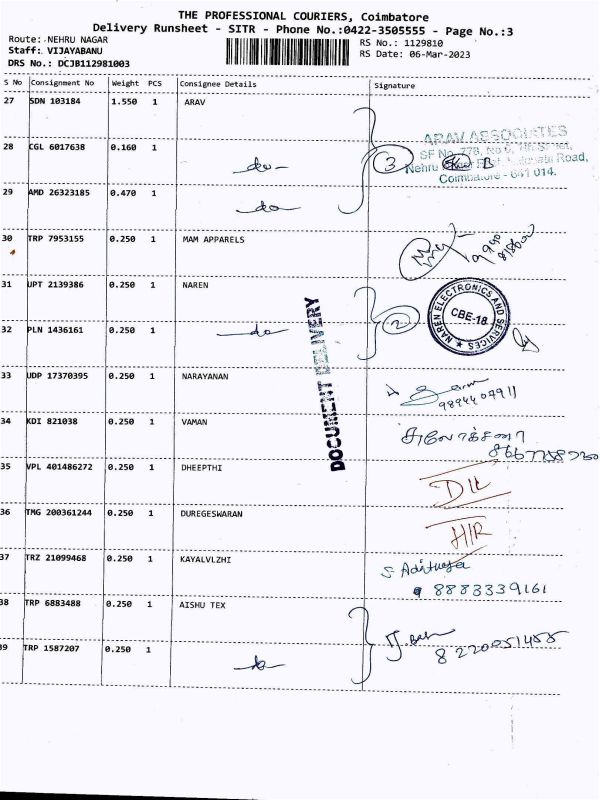 THE PROFESSIONAL COURIERS, Coimbatore
Delivery Runsheet - SITR - Phone No.:0422-3505555 - Page No.:3
Route: NEHRU NAGAR RS No.: 1129810
Staff: VIJAYABANU RS Date: 06-Mar-2023
DRS No.: DCJB112981003
S No Consignment No Weight PCS Consignee Details Signature
27 SDN 103184 1.550 1 ARAV
ARAV ASSOCIATES
28 CGL 6017638 0.160 1 do 3
Coimbatore - 641 014.
29 AMD 26323185 0.470 1 do
30 TRP 7953155 0.250 1 MAM APPARELS
31 UPT 2139386 0.250 1 NAREN
NAREN ELECTRONICS AND SERVICES
CBE-18
32 PLN 1436161 0.250 1 do 2
DOCUMENT DELIVERY
33 UDP 17370395 0.250 1 NARAYANAN
34 KDI 821038 0.250 1 VAMAN
சுலோச்சனா
35 VPL 401486272 0.250 1 DHEEPTHI
DLL
36 TMG 200361244 0.250 1 DUREGESWARAN
H/R
37 TRZ 21099468 0.250 1 KAYALVLZHI
S Adithya
8883339161
38 TRP 6883488 0.250 1 AISHU TEX
8220051455
39 TRP 1587207 0.250 1 do